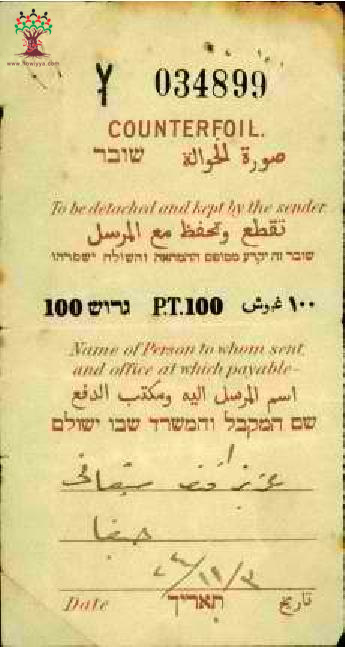 www.howiyya.com
Y 034899
COUNTERFOIL.
صورة الحوالة שובר
To be detached and kept by the sender
تقطع وتحفظ مع المرسل
שובר זה יקרע מטופס ההמחאה והשולח ישמרהו
100 גרוש P.T.100 ١٠٠ غروش
Name of Person to whom sent,
and office at which payable-
اسم المرسل اليه ومكتب الدفع
שם המקבל והמשרד שבו ישולם
عزيز
حيفا
Date תאריך تاريخ